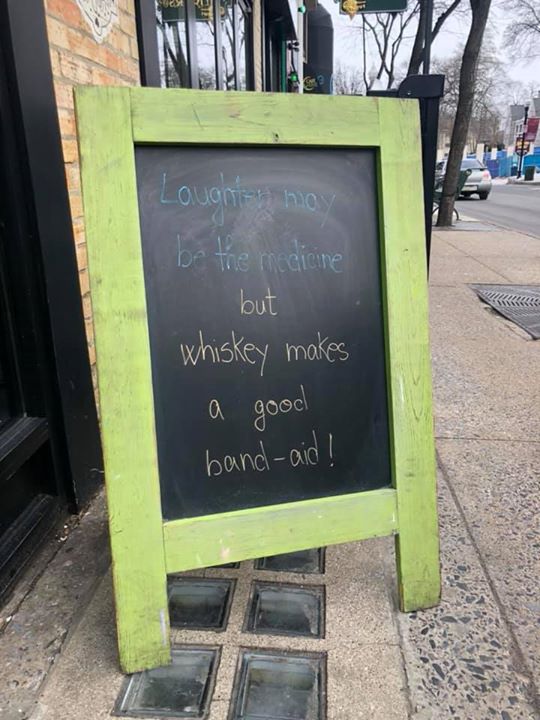 Laughter may
be the medicine
but
whiskey makes
a good
band-aid!